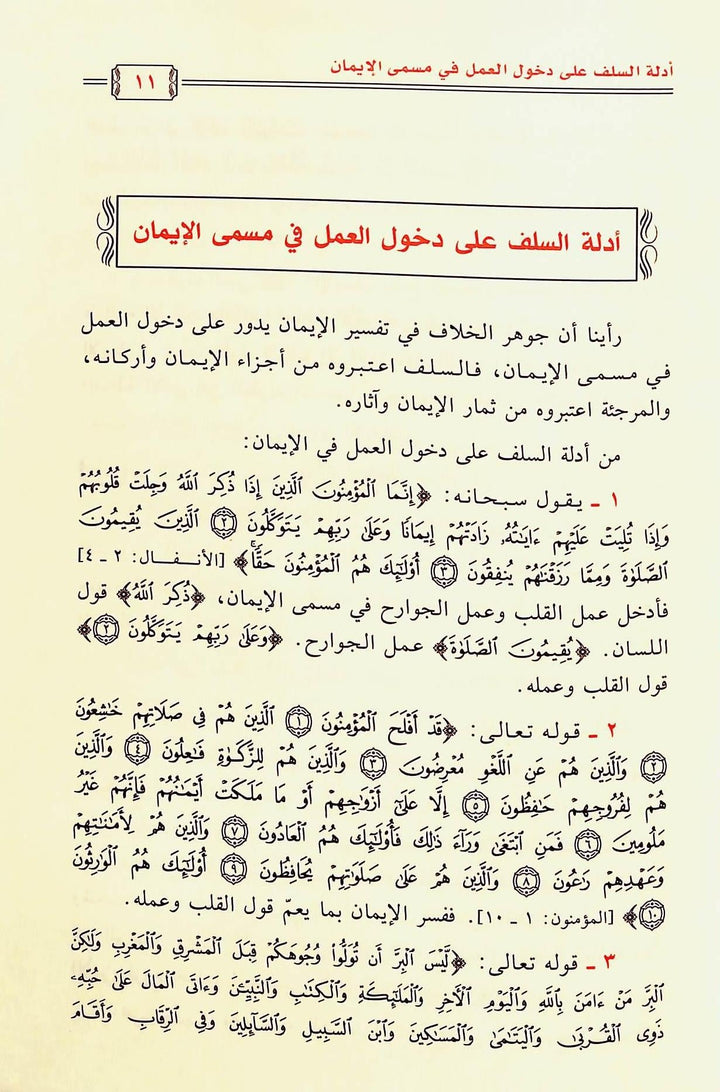 أدلة السلف على دخول العمل في مسمى الإيمان
١١
أدلة السلف على دخول العمل في مسمى الإيمان
رأينا أن جوهر الخلاف في تفسير الإيمان يدور على دخول العمل
في مسمى الإيمان، فالسلف اعتبروه من أجزاء الإيمان وأركانه،
والمرجئة اعتبروه من ثمار الإيمان وآثاره.
من أدلة السلف على دخول العمل في الإيمان:
١ ـ يقول سبحانه: ﴿إِنَّمَا ٱلْمُؤْمِنُونَ ٱلَّذِينَ إِذَا ذُكِرَ ٱللَّهُ وَجِلَتْ قُلُوبُهُمْ
وَإِذَا تُلِيَتْ عَلَيْهِمْ ءَايَـٰتُهُۥ زَادَتْهُمْ إِيمَانًا وَعَلَىٰ رَبِّهِمْ يَتَوَكَّلُونَ ۝٢ ٱلَّذِينَ يُقِيمُونَ
ٱلصَّلَوٰةَ وَمِمَّا رَزَقْنَـٰهُمْ يُنفِقُونَ ۝٣ أُو۟لَـٰٓئِكَ هُمُ ٱلْمُؤْمِنُونَ حَقًّا﴾ [الأنفال: ٢ ـ ٤]
فأدخل عمل القلب وعمل الجوارح في مسمى الإيمان، ﴿ذُكِرَ ٱللَّهُ﴾ قول
اللسان. ﴿يُقِيمُونَ ٱلصَّلَوٰةَ﴾ عمل الجوارح. ﴿وَعَلَىٰ رَبِّهِمْ يَتَوَكَّلُونَ ۝٢﴾
قول القلب وعمله.
٢ ـ قوله تعالى: ﴿قَدْ أَفْلَحَ ٱلْمُؤْمِنُونَ ۝١ ٱلَّذِينَ هُمْ فِى صَلَاتِهِمْ خَـٰشِعُونَ
۝٢ وَٱلَّذِينَ هُمْ عَنِ ٱللَّغْوِ مُعْرِضُونَ ۝٣ وَٱلَّذِينَ هُمْ لِلزَّكَوٰةِ فَـٰعِلُونَ ۝٤ وَٱلَّذِينَ
هُمْ لِفُرُوجِهِمْ حَـٰفِظُونَ ۝٥ إِلَّا عَلَىٰٓ أَزْوَٰجِهِمْ أَوْ مَا مَلَكَتْ أَيْمَـٰنُهُمْ فَإِنَّهُمْ غَيْرُ
مَلُومِينَ ۝٦ فَمَنِ ٱبْتَغَىٰ وَرَآءَ ذَٰلِكَ فَأُو۟لَـٰٓئِكَ هُمُ ٱلْعَادُونَ ۝٧ وَٱلَّذِينَ هُمْ لِأَمَـٰنَـٰتِهِمْ
وَعَهْدِهِمْ رَٰعُونَ ۝٨ وَٱلَّذِينَ هُمْ عَلَىٰ صَلَوَٰتِهِمْ يُحَافِظُونَ ۝٩ أُو۟لَـٰٓئِكَ هُمُ ٱلْوَٰرِثُونَ
۝١٠﴾ [المؤمنون: ١ ـ ١٠]. ففسر الإيمان بما يعمّ قول القلب وعمله.
٣ ـ قوله تعالى: ﴿لَّيْسَ ٱلْبِرَّ أَن تُوَلُّوا۟ وُجُوهَكُمْ قِبَلَ ٱلْمَشْرِقِ وَٱلْمَغْرِبِ وَلَـٰكِنَّ
ٱلْبِرَّ مَنْ ءَامَنَ بِٱللَّهِ وَٱلْيَوْمِ ٱلْـَٔاخِرِ وَٱلْمَلَـٰٓئِكَةِ وَٱلْكِتَـٰبِ وَٱلنَّبِيِّـۧنَ وَءَاتَى ٱلْمَالَ عَلَىٰ حُبِّهِۦ
ذَوِى ٱلْقُرْبَىٰ وَٱلْيَتَـٰمَىٰ وَٱلْمَسَـٰكِينَ وَٱبْنَ ٱلسَّبِيلِ وَٱلسَّآئِلِينَ وَفِى ٱلرِّقَابِ وَأَقَامَ